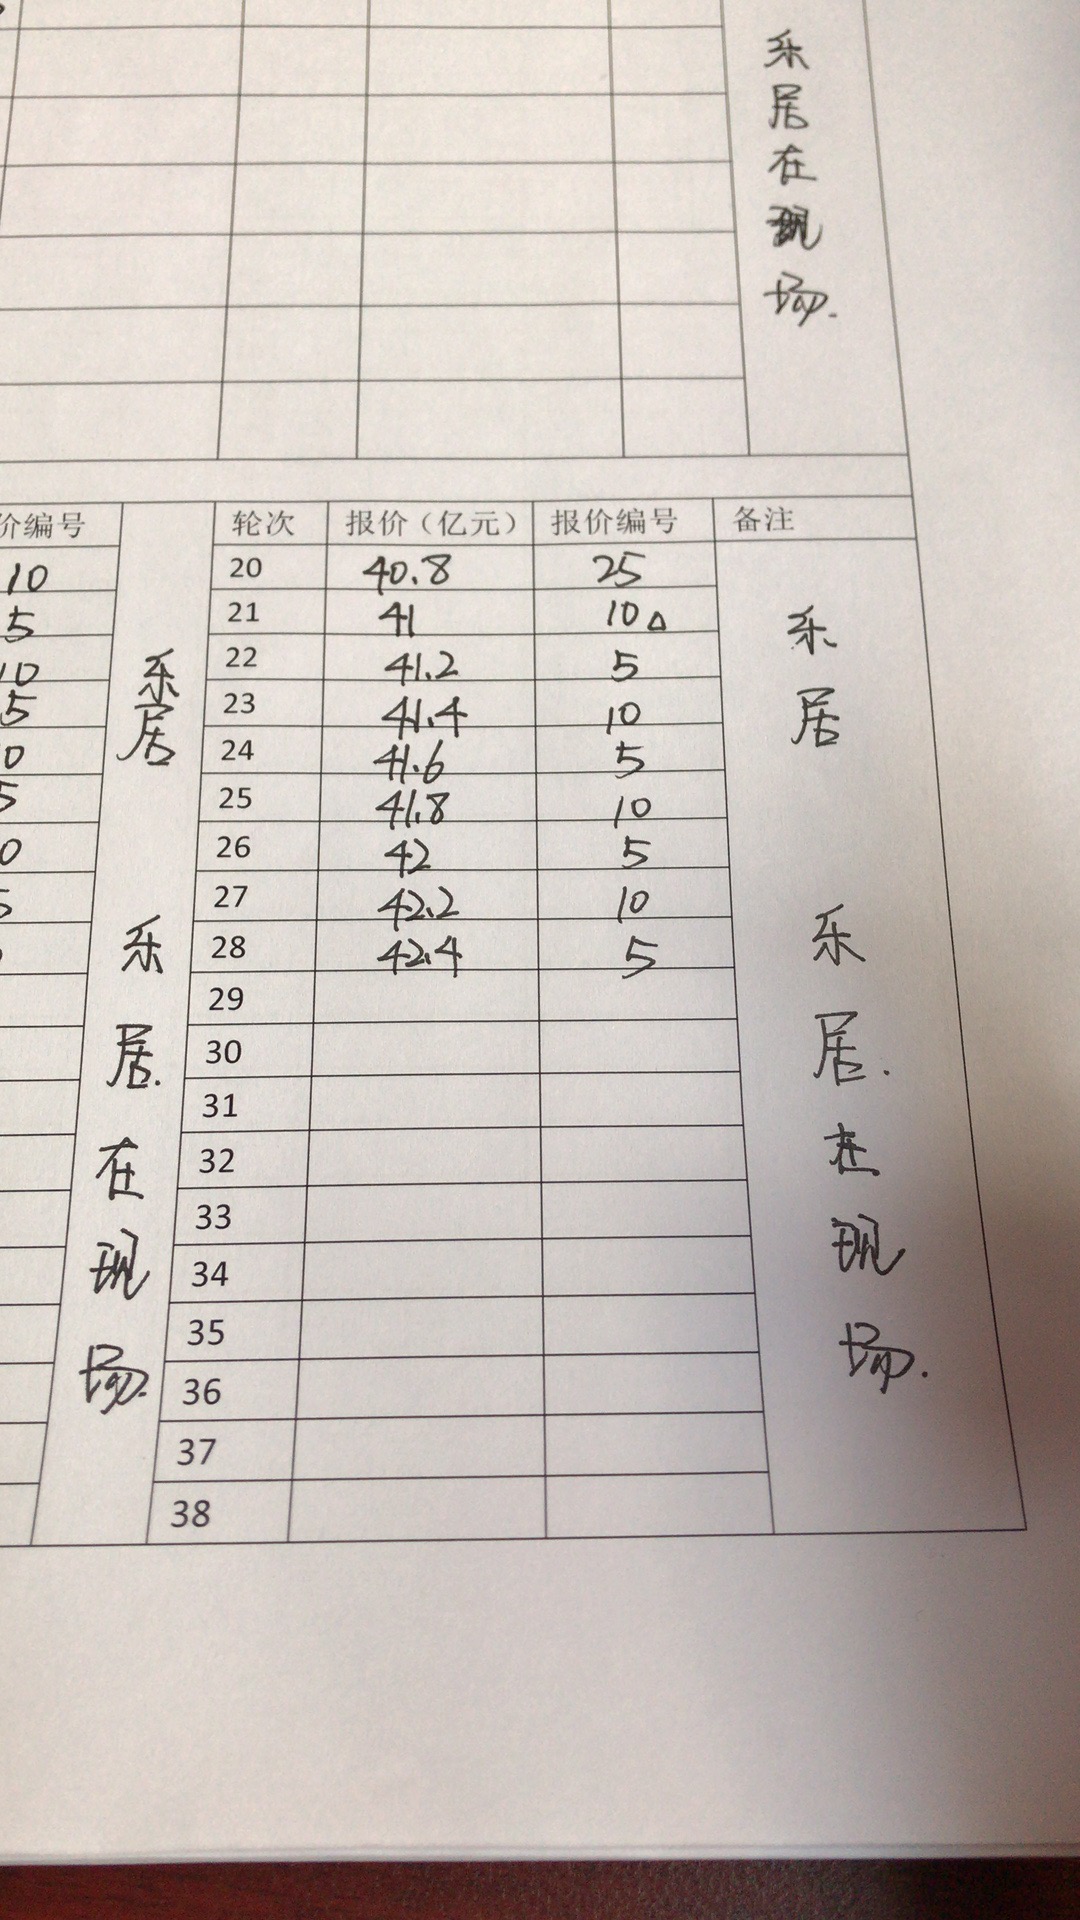 乐居在现场.
价编号
轮次 报价（亿元） 报价编号 备注
10 20 40.8 25
5 21 41 10△
10 22 41.2 5
5 23 41.4 10
0 24 41.6 5
5 25 41.8 10
0 26 42 5
5 27 42.2 10
28 42.4 5
29
30
31
32
33
34
35
36
37
38
乐居
乐居.在现场.
乐居
乐居.在现场.